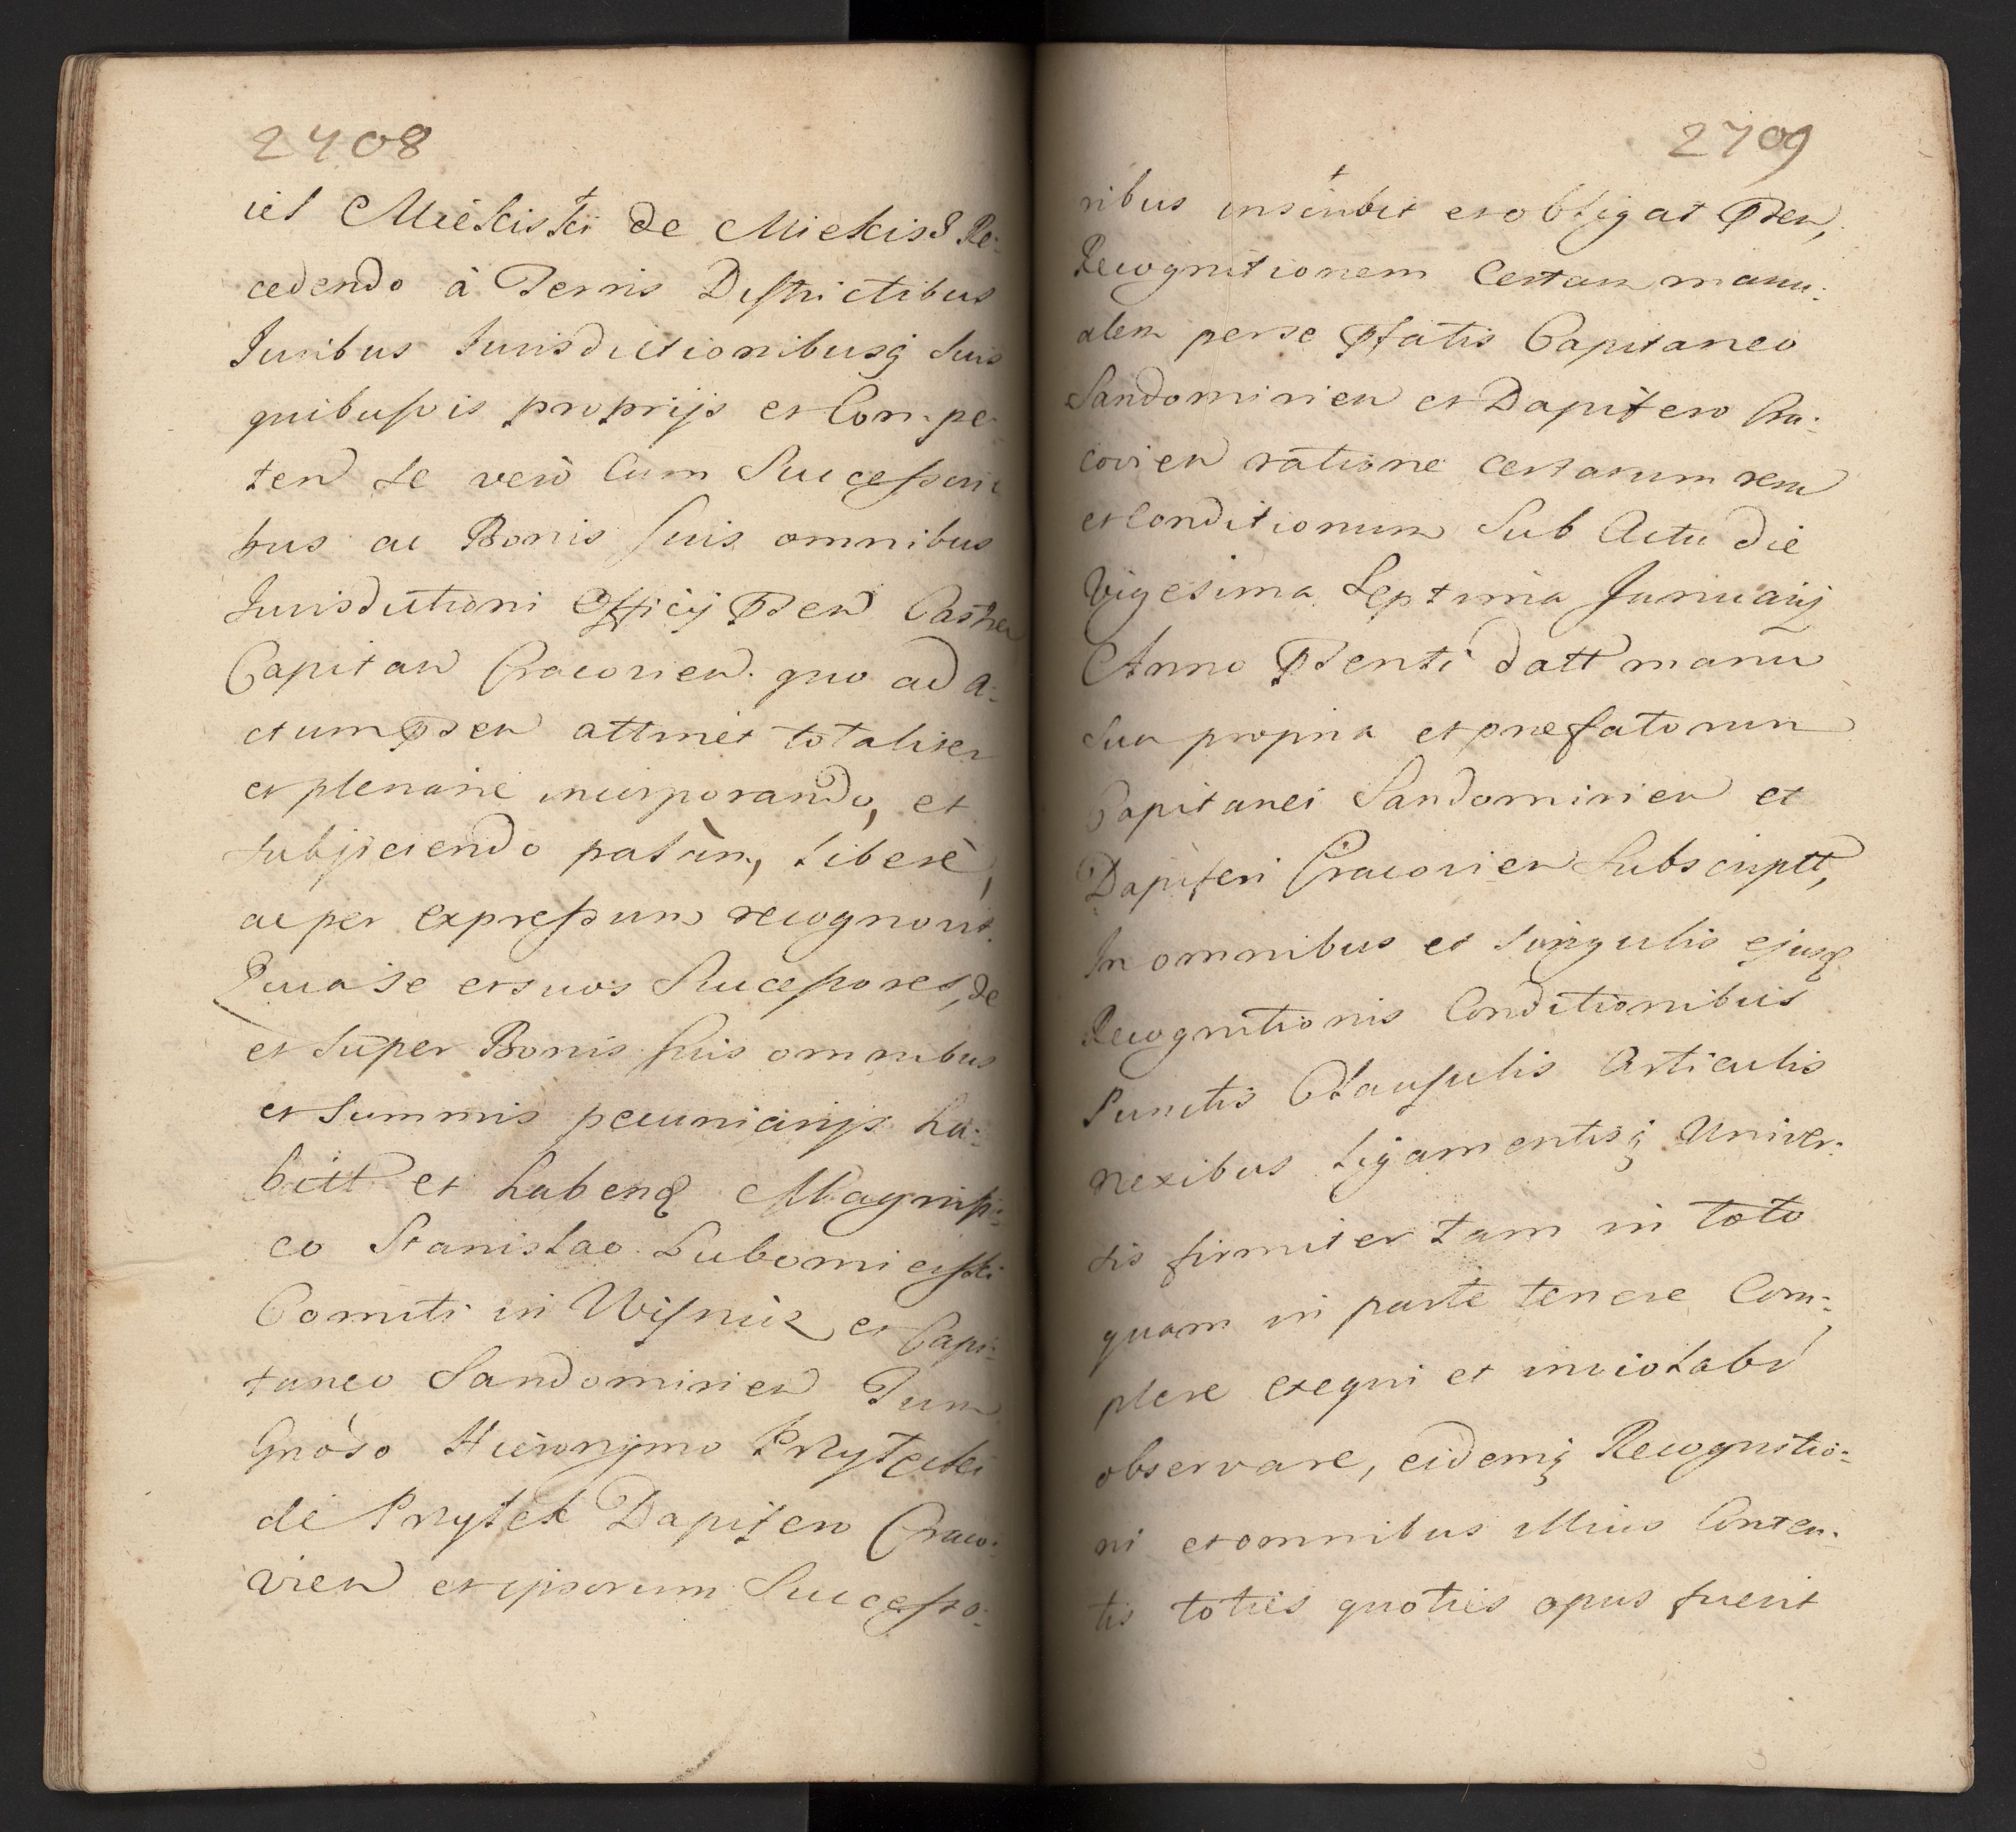 2408
iel Miękiski de Miekis Re:
cedendo à Terris Districtibus
Juribus Jurisdictionibusq Suis
quibusvis proprijs et Com-pe
ten se verò Cum Successori
bus ac Bonis suis omnibus
Jurisdictioni Officij Psen Castren
Capitan Cracovien. quo ad a:
ctum Psen attinet totaliter
et plenarie incorporando, et
subjiciendo palàm, libere,
ac per expressum recognovit.
Quia Se et suos Successores, de
et Super Bonis suis omnibus
et Summis pecuniarijs ha:
bitt et habenq Magnifi:
co Stanislao Lubomirski
Comiti in Wisnicz et Capi:
taneo Sandomirien Tum
Gnòso Hieronymo Przyłęcki
de Przyłek Dapifero Craco:
vien et ipsorum Successo:
2709
ribus inscribit et obligat Psen,
Recognitionem Certam manu:
alem per se Pfatis Capitaneo
Sandomirien et Dapifero Cra:
covien ratione certarum reru
et Conditionum Sub Actu die
Vigesima Septima Januarij
Anno Psenti datt manu
Sua propria et prefatorum
Capitanei Sandomirien et
Dapiferi Cracovien Subscriptt,
In omnibus et singulis ejusq
Recognitionis Conditionibus
Punctis Clausulis Articulis
Nexibus Ligamentisq Univer:
sis firmiter tam in toto
quam in parte tenere Com:
plere exequi et inviolabr
observare, eidemq Recognitio:
ni et omnibus illius Conten:
tis toties quoties opus fuerit